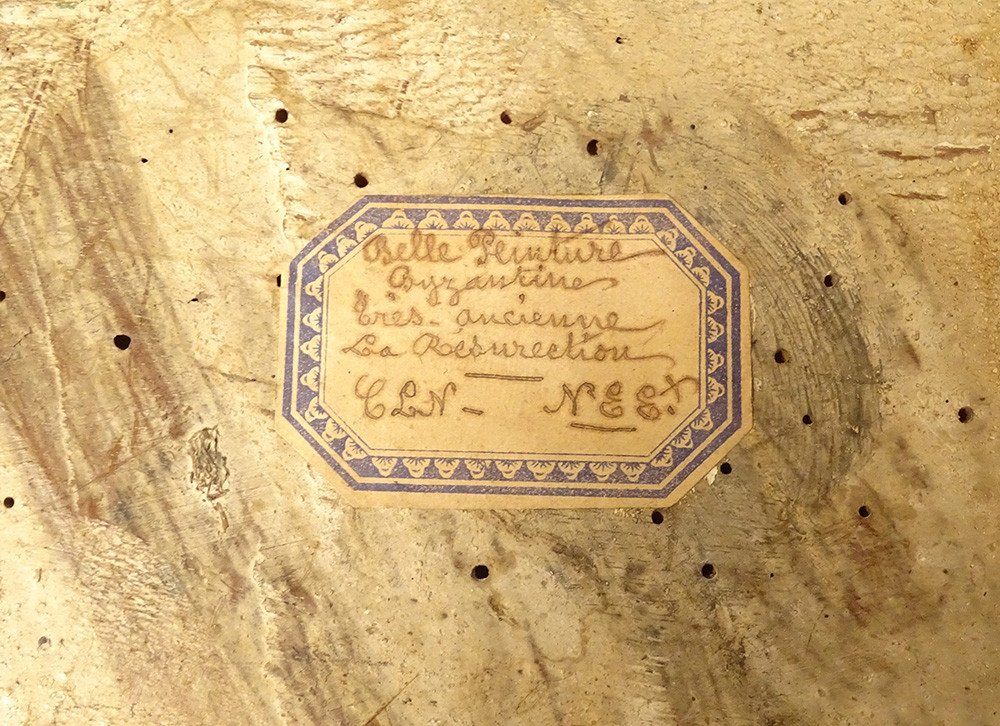 Belle Peinture
Byzantine
Très-ancienne
La Résurection
CLN - NEE.